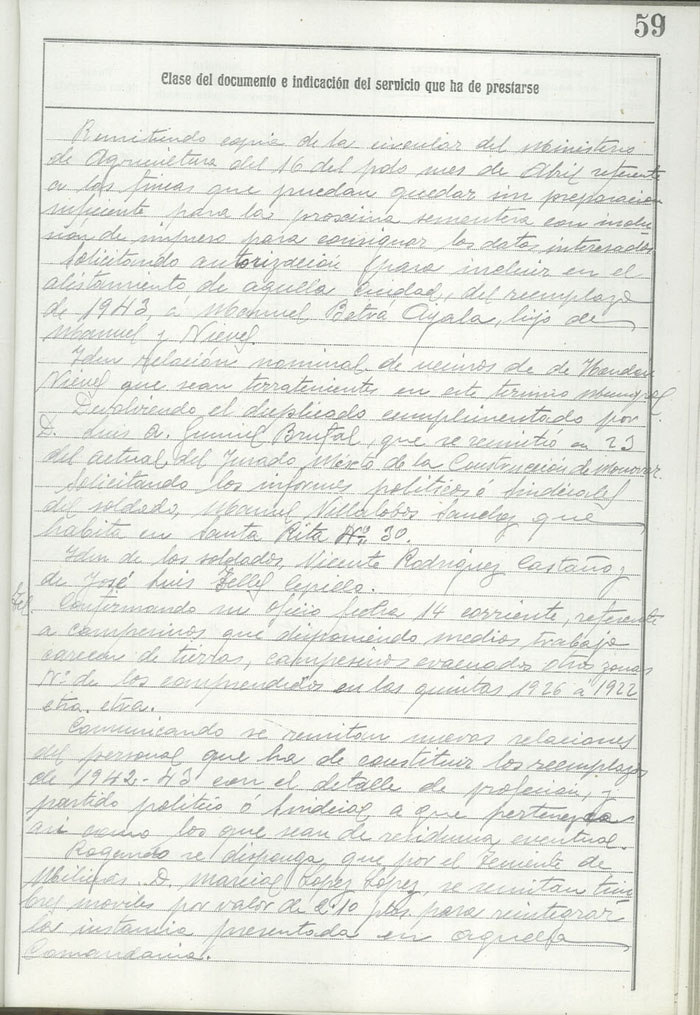 59
Clase del documento e indicación del servicio que ha de prestarse
Remitiendo copia de la circular del Ministerio
de Agricultura del 16 del pdo mes de Abril referente
a las fincas que puedan quedar sin preparación
suficiente para la proxima sementera con inclu-
sión de impreso para consignar los datos interesados
Solicitando autorización para incluir en el
alistamiento de aquella Ciudad, del reemplazo
de 1943, á Manuel Ayala, hijo de
Manuel y Nieves
Iden relación nominal de vecinos de de Hondón
Nieves que sean terrateniente en este termino Municipal
Devolviendo el duplicado cumplimentado por
D. Luis A. Brutal, que se remitió en 23
del actual del Jurado Mixto de la Construcción de Monovar.
Solicitando los informes politicos ó Sindicales
del soldado, Manuel Villalobos Sanchez que
habita en Santa Rita Nº 30.
Iden de los soldados, Vicente Rodriguez Castaño y
de José Luis
Tel. Confirmando mi oficio fecha 14 corriente, referente
a campesinos que disponiendo medios trabajo
carecen de tierras, campesinos evacuados otras zonas
Nº de los comprendidos en las quintas 1926 a 1922
etra. etra.
Comunicando se remitan nuevas relaciones
del personal que ha de constituir los reemplazos
de 1942-43 con el detalle de profesion, y
partido politico ó Sindical a que pertenezcan
asi como los que sean de residencia eventual.
Rogando se disponga que por el Teniente de
Milicias D. Marcial Lopez Lopez, se remitan tim-
bres moviles por valor de ptas para reintegrar
la instancia presentada en aquella
Comandancia.